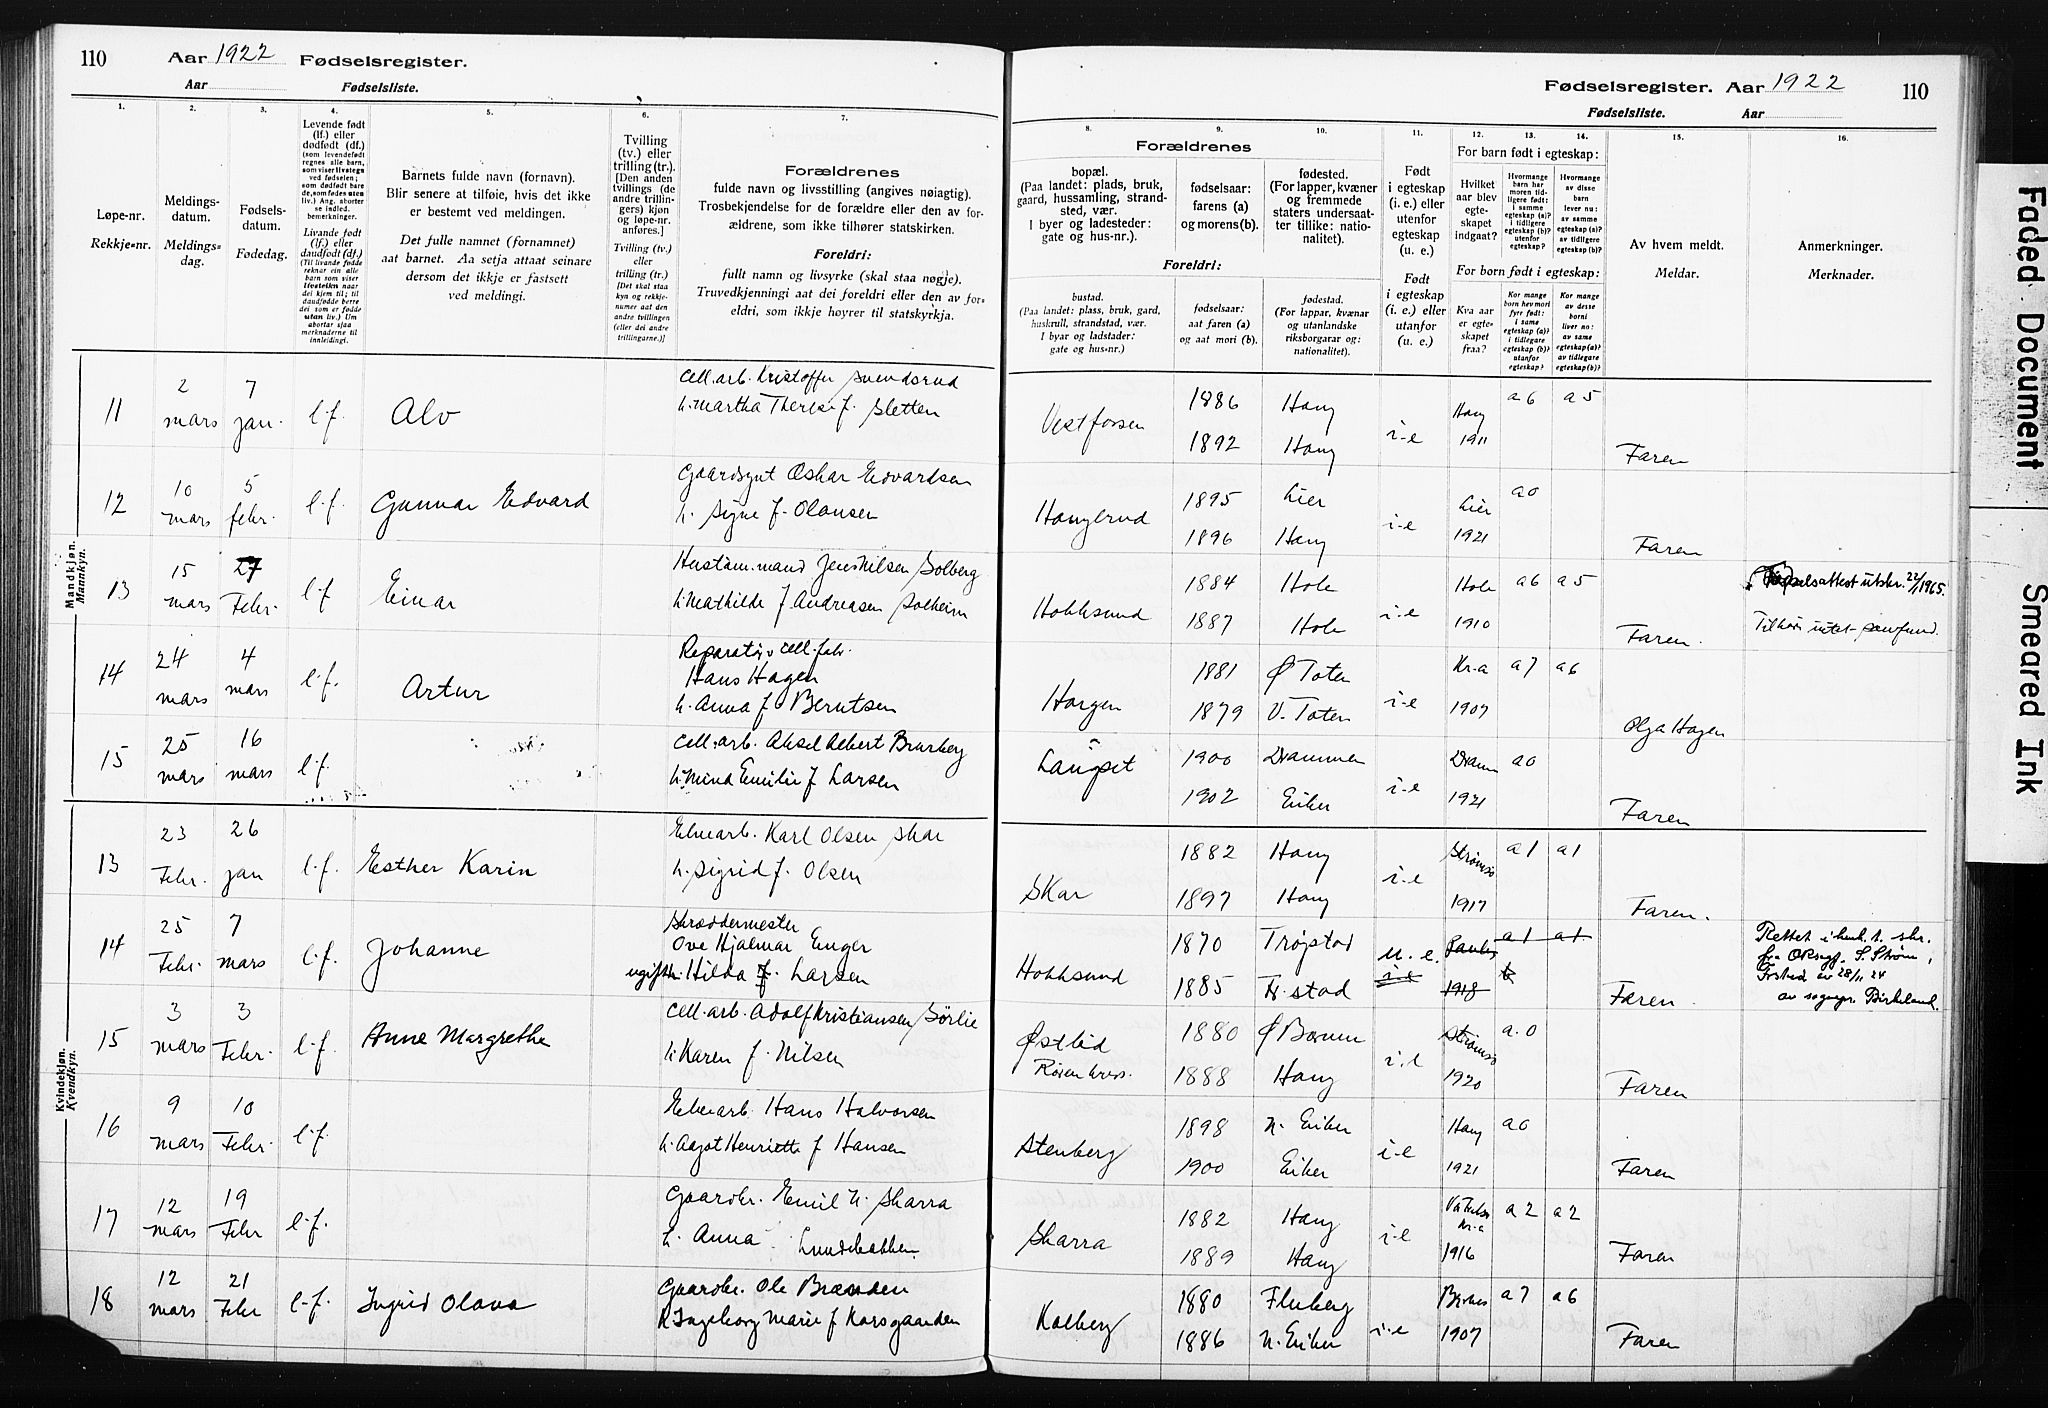 110 Aar 1922 Fødselsregister.
Aar Fødselsliste.
Fødselsregister. Aar 1922 110
Fødselsliste. Aar
1. 2. 3. 4. 5. 6. 7.
Løpe-nr.
Rekkje-nr.
Meldings-
datum.
Meldings-
dag.
Fødsels-
datum.
Fødedag.
Levende født
(lf.) eller
dødfødt (df.)
(som levendefødt
regnes alle barn,
som viser livstegn
ved fødselen;
som dødfødt bare
de, som fødes uten
liv.) Ang. aborter
se indled.
bemerkninger.
Livande fødd
(lf.) eller
daudfødt (df.)
(Til livande fødde
reknar ein alle
born som viser
livsteikn naar
dei kjem til; til
daudfødde berre
dei som er fødde
utan liv.) Um
abortar sjaa
merknaderne til
innleidingi.
Barnets fulde navn (fornavn).
Blir senere at tilføie, hvis det ikke
er bestemt ved meldingen.
Det fulle namnet (fornamnet)
aat barnet. Aa setja attaat seinare
dersom det ikkje er fastsett
ved meldingi.
Tvilling
(tv.) eller
trilling (tr.).
[Den anden
tvillings (de
andre trillin-
gers) kjøn
og løpe-nr.
anføres.]
Tvilling (tv.)
eller
trilling (tr.)
[Det skal staa
kyn og rekkje-
numer aat den
andre tvillingen
(eller dei andre
trillingarne.)]
Forældrenes
fulde navn og livsstilling (angives nøiagtig).
Trosbekjendelse for de forældre eller den av for-
ældrene, som ikke tilhører statskirken.
Foreldri:
fullt namn og livsyrke (skal staa nøgje).
Truvedkjenningi aat dei foreldri eller den av for-
eldri, som ikkje høyrer til statskyrkja.
8. 9. 10. 11. 12. 13. 14. 15. 16.
Forældrenes
bopæl.
(Paa landet: plads, bruk,
gaard, hussamling, strand-
sted, vær.
I byer og ladesteder:
gate og hus-nr.).
fødselsaar:
farens (a)
og morens (b).
fødested.
(For lapper, kvæner
og fremmede
staters undersaat-
ter tillike: natio-
nalitet).
Foreldri:
bustad.
(Paa landet: plass, bruk, gard,
huskrull, strandstad, vær.
I byar og ladstader:
gate og hus-nr.)
fødselsaar:
aat faren (a)
og aat mori (b).
fødestad.
(For lappar, kvænar
og utanlandske
riksborgarar og:
nationalitet).
Født
i egteskap
(i. e.) eller
utenfor
egteskap
(u. e.)
Født
i egteskap
(i. e.) eller
utanfor
(u. e.)
For barn født i egteskap:
Hvilket
aar blev
egte-
skapet
indgaat?
Hvormange
barn har
moren tid-
ligere født:
i samme
egteskap (a)?
i tidligere
egteskap (b)?
utenfor
egteskap?
Hvormange
av disse
barn
lever nu:
av samme
egteskap (a)?
av tidligere
egteskap (b)?
For born født i egteskap:
Kva aar
er egte-
skapet
fraa?
Kor mange
born hev mori
fyrr født:
i same
egteskap (a)?
i tidlegare
egteskap (b)?
utanfor
egteskap?
Kor mange
av desse
borni
liver no:
av same
egteskap (a)?
av tidlegare
egteskap (b)?
Av hvem meldt.
Meldar.
Anmerkninger.
Merknader.
Mandkjøn.
Mannkyn.
11 2 mars 7 jan. l.f. Alv
Cell.arb. Kristoffer Svendsrud
h. Martha Therese f. Sletten
Vestfossen 1886 Haug i-e Haug a6 a5
1892 Haug 1911 Faren
12 10 mars 5 febr. l.f. Gunnar Edvard
Gaardsgut Oskar Edvardsen
h. Signe f. Olausen
Hauglerud 1895 Lier i-e Lier a0
1896 Haug 1921 Faren
13 15 mars 27 Febr. l.f Einar
Jens Nilsen Solberg
h. Mathilde f. Andreasen Solheim
Hokksund 1884 Hole i-e Hole a6 a5 Fødselsattest utskr. 22/1 1965.
1887 Hole 1910 Faren. Tilhører intet samfund.
14 24 mars 4 mars l.f. Artur
Reparatør v cell.fabr.
Hans Hagen
h. Anna f Berntsen
Horgen 1881 Ø Toten i-e Kr.a a7 a6
1879 V. Toten 1907 Olga Hagen
15 25 mars 16 mars l.f.
Cell.arb. Aksel Albert Brurberg
h. Mina Emilie f Larsen
Langset 1900 Drammen i-e Dramm a0
1902 Eiker 1921 Faren
Kvindekjøn.
Kvendkyn.
13 23 Febr. 26 jan l.f. Esther Karin
Elvearb. Karl Olsen Skar
h. Sigrid f. Olsen
Skar 1882 Haug i-e Strømsø a1 a1
1897 Haug 1917 Faren.
14 25 Febr. 7 mars l.f. Johanne
Skræddermester
Ove Hjalmar Enger
ugift h. Hilda f. Larsen
Hokksund 1870 Trøgstad u.e. a1 a1 Rettet i henh. t. skr.
1885 Tr.stad i-e 1918 b Faren. fra S. Strøm,
av 28/11 24
av sognepr. Birkeland.
15 3 mars 3 Febr. l.f. Anne Margrethe
Cell.arb. Adolf Kristiansen Sørlie
h. Karen f. Nilsen
Østlid 1880 Ø Bærum i.e Strømsø a.0
1888 Haug 1920 Faren
16 9 mars 10 Febr. l.f.
Elvearb. Hans Halvorsen
h. Aagot Henriette f Hansen
Stenberg 1898 N. Eiker i-e Haug a0
1900 Eiker 1921 Faren
17 12 mars 19 Febr l.f.
Gaardbr. Emil N. Skarra
h. Anna Lundebakken.
Skarra 1882 Haug i-e Kr.a a2 a2
1889 Haug 1916 Faren
18 12 mars 21 Febr l.f. Ingrid Olava
Gaardbr. Ole Brænden
h. Ingeborg Marie f Korsgaarden
Kolberg 1880 Fluberg i-e a7 a6
1886 N. Eiker 1907 Faren
Faded Document
Smeared Ink